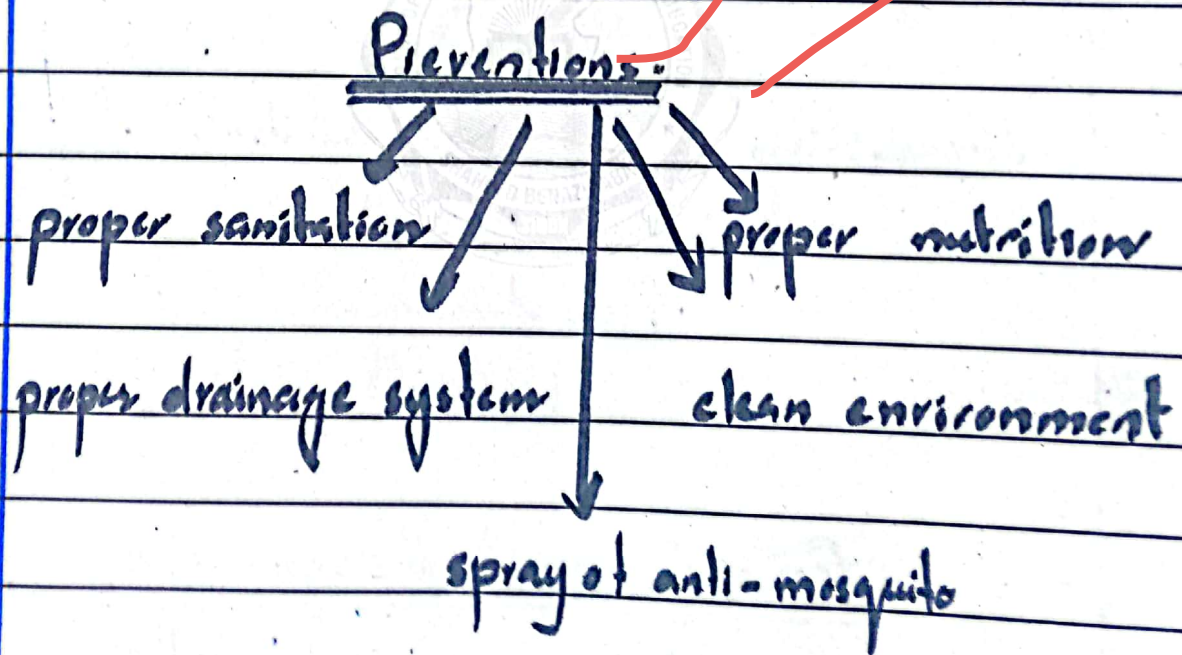 Preventions.
proper sanitation
proper nutrition
proper drainage system
clean environment
spray of anti-mosquito